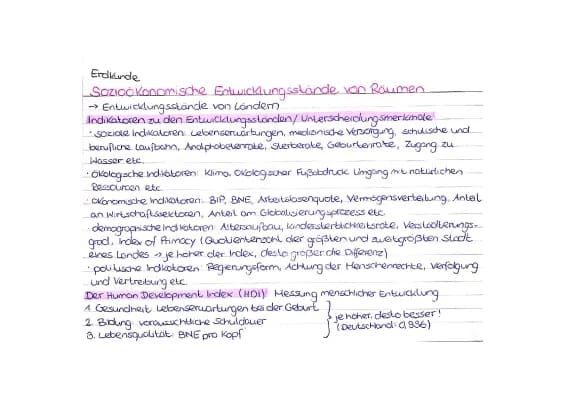 Erdkunde
Sozioökonomische Entwicklungsstände von Räumen
→ Entwicklungsstände von Ländern
Indikatoren zu den Entwicklungsständen/ Unterscheidungsmerkmale
· soziale Indikatoren: Lebenserwartungen, medizinische Versorgung, schulische und
berufliche Laufbahn, Analphabetenrate, Sterberate, Geburtenrate, Zugang zu
Wasser etc.
· ökologische Indikatoren: Klima, ökologischer Fußabdruck, Umgang mit natürlichen
Ressourcen etc.
· ökonomische Indikatoren: BIP, BNE, Arbeitslosenquote, Vermögensverteilung, Anteil
an Wirtschaftssektoren, Anteil am Globalisierungsprozess etc.
· demographische Indikatoren: Altersaufbau, Kindersterblichkeitsrate, Verstädterungs-
grad, Index of Primacy (Quotientenzahl der größten und zweitgrößten Stadt
eines Landes → je höher der Index, desto größer die Differenz)
· politische Indikatoren: Regierungsform, Achtung der Menschenrechte, Verfolgung
und Vertreibung etc.
Der Human Development Index (HDI): Messung menschlicher Entwicklung
1. Gesundheit: Lebenserwartungen bei der Geburt
2. Bildung: voraussichtliche Schuldauer
3. Lebensqualität: BNE pro Kopf
je höher, desto besser!
(Deutschland: 0,936)